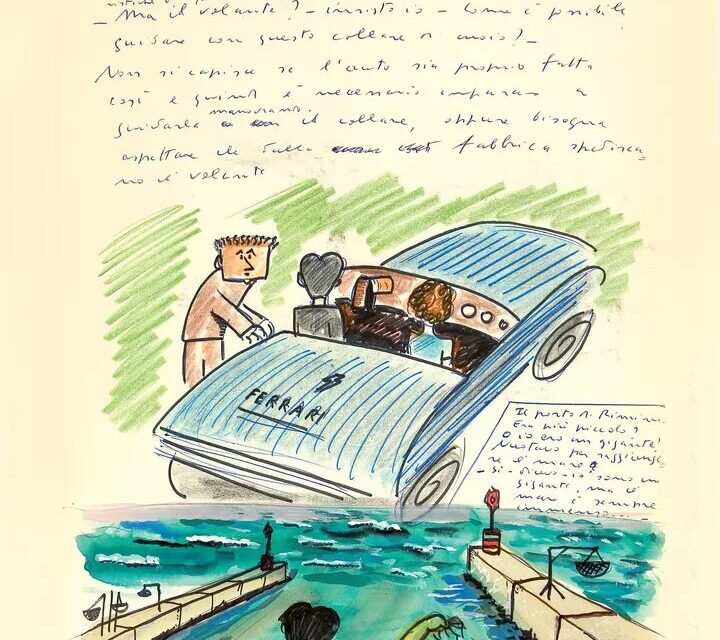 - Ma il volante? - insisto io - Come è possibile
guidare con questo collare di cuoio? -
Non si capisce se l'auto sia proprio fatta
così e quindi è necessario imparare a
manovrando
guidarla il collare, oppure bisogna
aspettare che dalla fabbrica spedisca=
no il volante
FERRARI
Il porto di Rimini.
Era più piccolo?
O io ero un gigante?
Nuotavo per raggiunge
re il mare
- Si - dicevo - io sono un
gigante, ma il
mare è sempre
immenso...